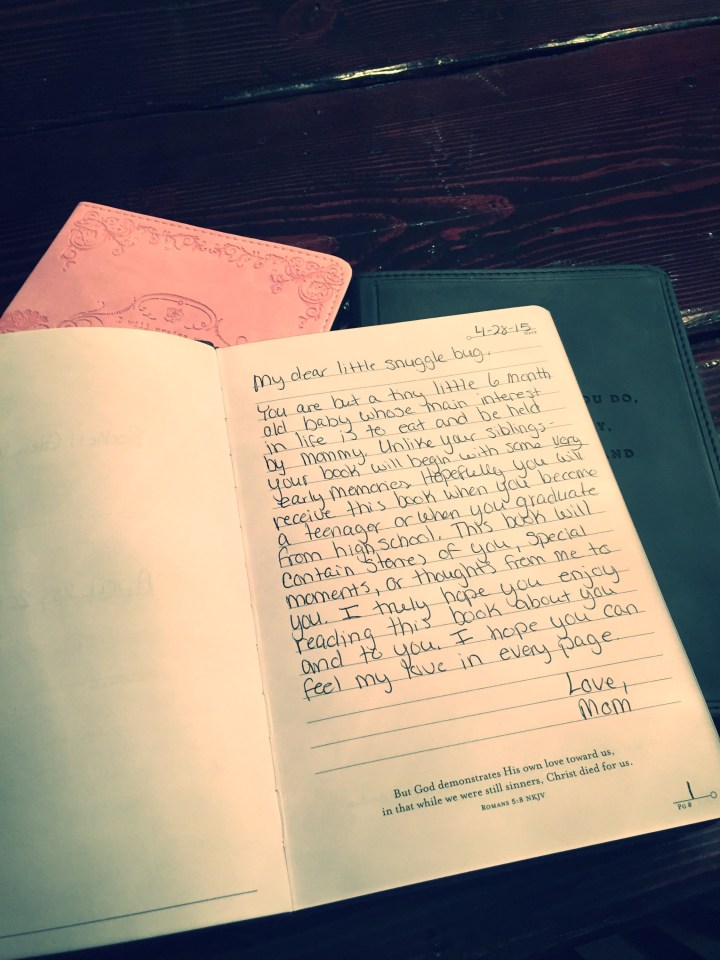 4-28-15
My dear little snuggle bug.
You are but a tiny little 6 month
old baby whose main interest
in life is to eat and be held
by mommy. Unlike your siblings-
your book will begin with some very
early memories. Hopefully you will
receive this book when you become
a teenager or when you graduate
from high school. This book will
contain stories of you, special
moments, or thoughts from me to
you. I truly hope you enjoy
reading this book about you
and to you. I hope you can
feel my love in every page.
Love,
Mom
But God demonstrates His own love toward us,
in that while we were still sinners, Christ died for us.
Romans 5:8 NKJV
1
Pg #
OU DO,
Y,
ND